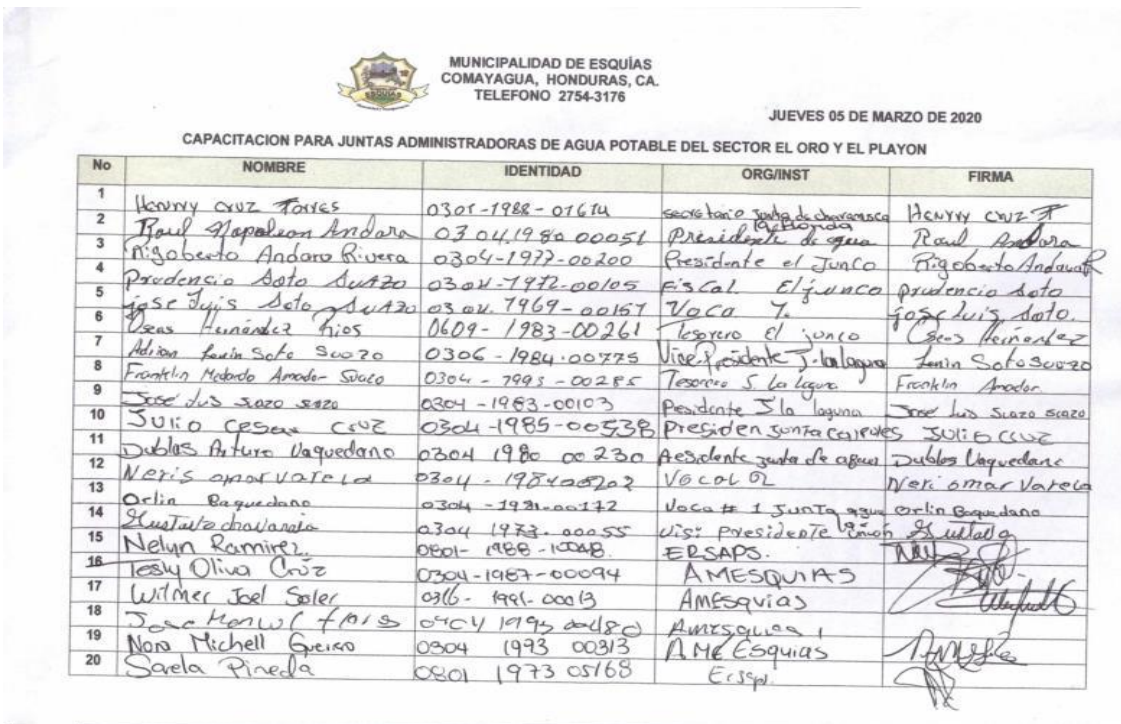 MUNICIPALIDAD DE ESQUÍAS
COMAYAGUA, HONDURAS, CA.
TELEFONO 2754-3176
ESQUIAS
JUEVES 05 DE MARZO DE 2020
CAPACITACION PARA JUNTAS ADMINISTRADORAS DE AGUA POTABLE DEL SECTOR EL ORO Y EL PLAYON
No NOMBRE IDENTIDAD ORG/INST FIRMA
1 Henrry cruz Torres 0301-1988-01614 secretario Junta de Henrry cruz T
2 Raul Napoleon Andara 0304.1980 00051 Presidente de agua Raul Andara
3 Rigoberto Andara Rivera 0304-1977-00200 Presidente el Junco Rigoberto Andara R
4 Prudencio Soto Suazo 0304-1972-00105 Fiscal El junco prudencio soto
5 jose Luis Soto Suazo 0304. 1969-00157 Voca 1. jose luis soto.
6 Oseas Hernández Rios 0609-1983-00261 Tesorero el junco Oseas Hernández
7 Adrian Lenin Soto Suozo 0306-1984.00775 Vice Presidente J. la laguna Lenin Soto Suozo
8 Franklin Medardo Amador Suazo 0304-1993-00285 Tesorero J. La laguna Franklin Amador
9 José Luis suazo suazo 0304-1963-00103 Presidente J la laguna Jose Luis suazo suazo
10 Julio Cesar Cruz 0304-1985-00538 Presiden Junta JULIO CRUZ
11 Dublas Arturo Vaquedano 0304 1980 00 230 Presidente junta de agua Dublas Vaquedano
12 Neris omar varela 0304- Vocal 02 Neri omar Varela
13 Orlin Baquedano 0304-1981-00172 Voca # 1 Junta agua Orlin Baquedano
14 Gustavo chavarria 0304 1973. 00055 Visi presidente unión Gustavo
15 Nelyn Ramirez. 0801-1988-10048. ERSAPS.
16 Tesly Oliva Cruz 0304-1987-00094 AMESQUIAS
17 Wilmer Joel Soler 0316-1991-00013 AMEsquias
18 Jose Manuel flores 1995 00480 Amesquias
19 Nora Michell 0304 1993 00313 AME Esquias
20 Sarela Pineda 0801 1973 05168 Ersaps.